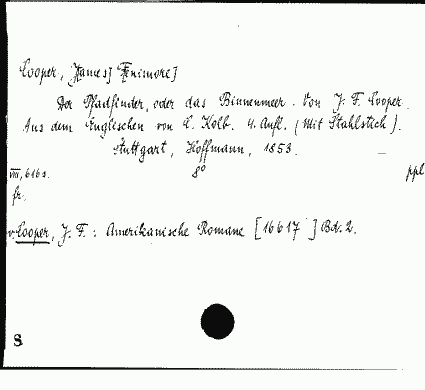 Cooper, J[ames] F[enimore]
Der Pfadfinder, oder das Binnenmeer. Von J. F. Cooper.
Aus dem Englischen von C. Kolb. 4. Aufl. (Mit Stahlstich).
Stuttgart, Hoffmann, 1853. –
VIII, 616 s. 8° ppl
fr.
v. Cooper, J. F.: Amerikanische Romane [16617] Bd. 2.
8